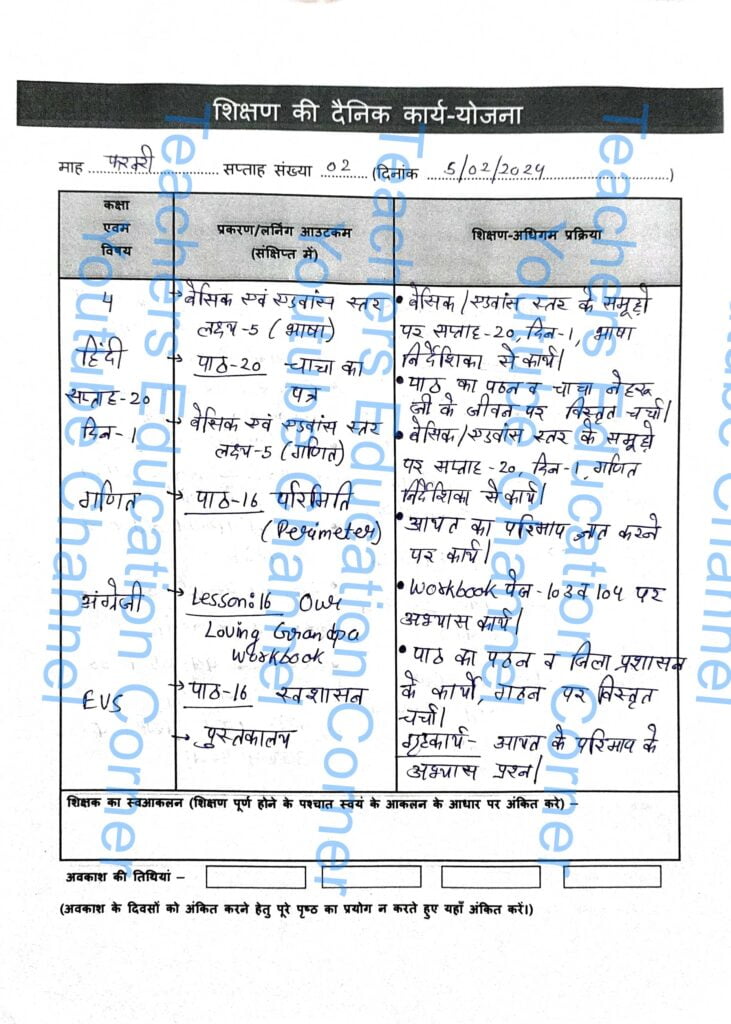 शिक्षण की दैनिक कार्य-योजना
माह फरवरी सप्ताह संख्या 02 (दिनांक 5/02/2024)
कक्षा एवम विषय
प्रकरण/लर्निंग आउटकम (संक्षिप्त में)
शिक्षण-अधिगम प्रक्रिया
4
हिंदी
सप्ताह-20
दिन-1
→ बेसिक एवं एडवांस स्तर
लक्ष्य-5 (भाषा)
→ पाठ-20 चाचा का
पत्र
→ बेसिक एवं एडवांस स्तर
लक्ष्य-5 (गणित)
• बेसिक/एडवांस स्तर के समूहों
पर सप्ताह-20, दिन-1, भाषा
निर्देशिका से कार्य।
• पाठ का पठन व चाचा नेहरू
जी के जीवन पर विस्तृत चर्चा।
• बेसिक/एडवांस स्तर के समूहों
पर सप्ताह-20, दिन-1, गणित
निर्देशिका से कार्य।
गणित
→ पाठ-16 परिमिति
(Perimeter)
• आयत का परिमाप ज्ञात करने
पर कार्य।
अंग्रेजी
→ Lesson:16 Our
Loving Grandpa
Workbook
• Workbook पेज-103 व 104 पर
अभ्यास कार्य।
EVS
→ पाठ-16 स्वशासन
→ पुस्तकालय
• पाठ का पठन व जिला प्रशासन
के कार्यों, गठन पर विस्तृत
चर्चा।
गृहकार्य- आयत के परिमाप के
अभ्यास प्रश्न।
शिक्षक का स्वआकलन (शिक्षण पूर्ण होने के पश्चात स्वयं के आकलन के आधार पर अंकित करे) –
अवकाश की तिथियां –
(अवकाश के दिवसों को अंकित करने हेतु पूरे पृष्ठ का प्रयोग न करते हुए यहाँ अंकित करें।)
Teachers Education Corner
Youtube Channel
Teachers Education Corner
Youtube Channel
Teachers Education Corner
Youtube Channel